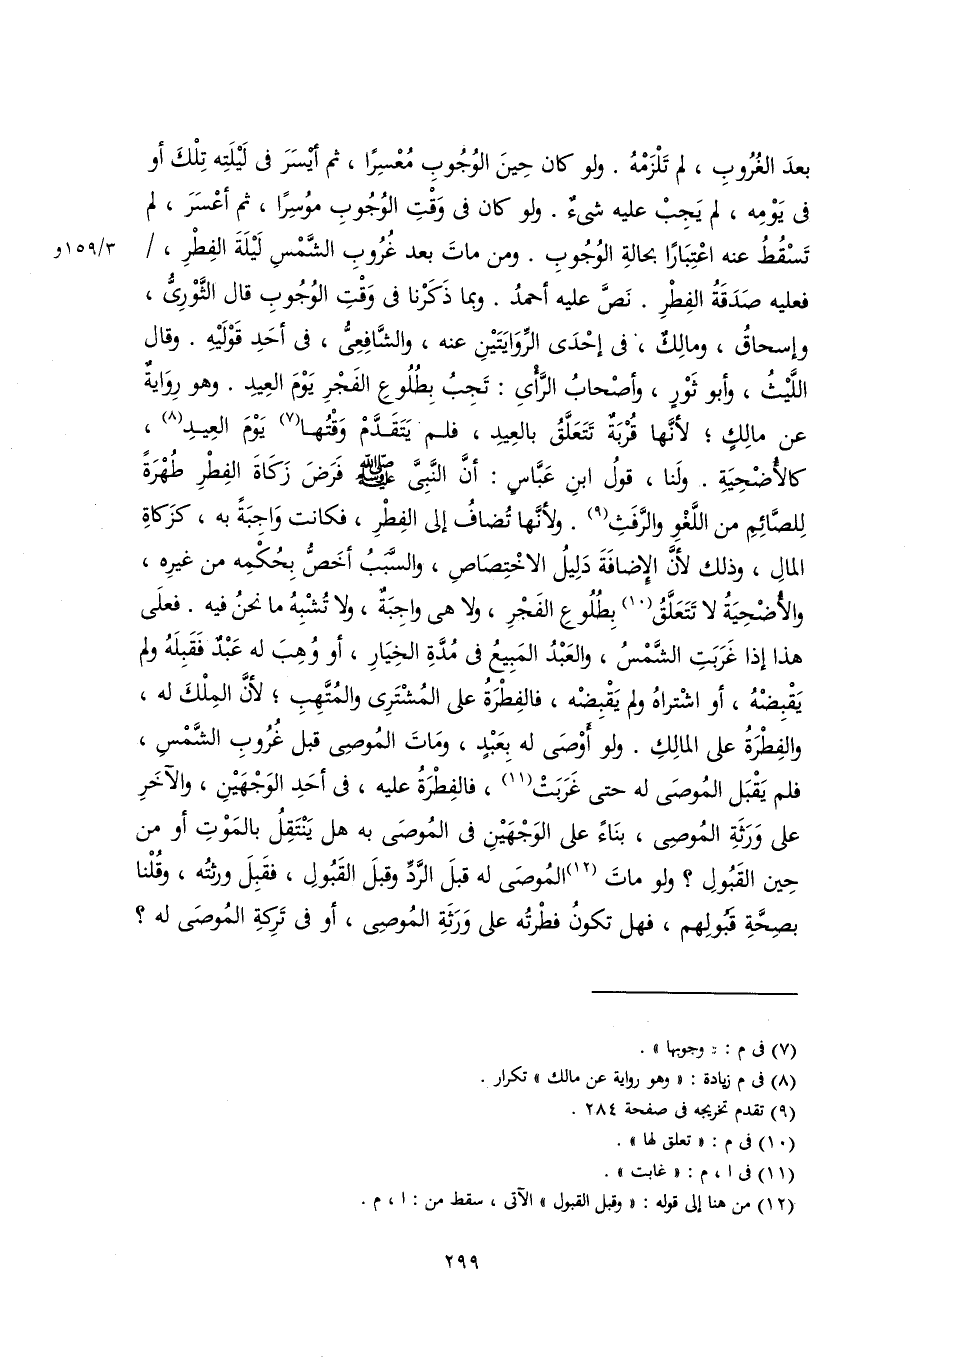 بعدَ الغُرُوبِ ، لم تَلْزَمْهُ . ولو كان حِينَ الوُجُوبِ مُعْسِرًا ، ثم أيْسَرَ فى لَيْلَتِه تِلْكَ أو
فى يَوْمِه ، لم يَجِبْ عليه شىءٌ . ولو كان فى وَقْتِ الوُجُوبِ مُوسِرًا ، ثم أعْسَرَ ، لم
تَسْقُطْ عنه اعْتِبَارًا بحالةِ الوُجُوبِ . ومن ماتَ بعد غُرُوبِ الشَّمْسِ لَيْلَةَ الفِطْرِ ، / ١٥٩/٣و
فعليه صَدَقَةُ الفِطْرِ . نَصَّ عليه أحمدُ . وبما ذَكَرْنا فى وَقْتِ الوُجُوبِ قال الثَّوْرِىُّ ،
وإسحاقُ ، ومالِكٌ ، فى إحْدَى الرِّوَايَتَيْنِ عنه ، والشَّافِعِىُّ ، فى أحَدِ قَوْلَيْهِ . وقال
اللَّيْثُ ، وأبو ثَوْرٍ ، وأصْحابُ الرَّأْىِ : تَجِبُ بِطُلُوعِ الفَجْرِ يَوْمَ العِيدِ . وهو رِوَايةٌ
عن مالِكٍ ؛ لأنَّها قُرْبَةٌ تَتَعَلَّقُ بالعِيدِ ، فلم يَتَقَدَّمْ وَقْتُها(٧) يَوْمَ العِيدِ(٨) ،
كالأُضْحِيَةِ . ولَنا ، قولُ ابنِ عَبَّاسٍ : أنَّ النَّبِىَّ ﷺ فَرَضَ زَكَاةَ الفِطْرِ طُهْرَةً
لِلصَّائِمِ من اللَّغْوِ والرَّفَثِ(٩) . ولأنَّها تُضافُ إلى الفِطْرِ ، فكانت وَاجِبَةً به ، كزَكاةِ
المالِ ، وذلك لأنَّ الإِضافَةَ دَلِيلُ الاخْتِصاصِ ، والسَّبَبُ أخَصُّ بِحُكْمِه من غيرِه ،
والأُضْحِيَةُ لا تَتَعَلَّقُ(١٠) بِطُلُوعِ الفَجْرِ ، ولا هى واجِبَةٌ ، ولا تُشْبِهُ ما نحنُ فيه . فعلَى
هذا إذا غَرَبَتِ الشَّمْسُ ، والعَبْدُ المَبِيعُ فى مُدَّةِ الخِيَارِ ، أو وُهِبَ له عَبْدٌ فَقَبِلَهُ ولم
يَقْبِضْهُ ، أو اشْتراهُ ولم يَقْبِضْه ، فالفِطْرَةُ على المُشْتَرِى والمُتَّهِبِ ؛ لأنَّ المِلْكَ له ،
والفِطْرَةُ على المالِكِ . ولو أَوْصَى له بِعَبْدٍ ، ومَاتَ المُوصِى قبل غُرُوبِ الشَّمْسِ ،
فلم يَقْبَلِ المُوصَى له حتى غَرَبَتْ(١١) ، فالفِطْرَةُ عليه ، فى أحَدِ الوَجْهَيْنِ ، والآخَرِ
على وَرَثَةِ المُوصِى ، بنَاءً على الوَجْهَيْنِ فى المُوصَى به هل يَنْتَقِلُ بالمَوْتِ أو من
حِينِ القَبُولِ ؟ ولو ماتَ (١٢)المُوصَى له قبلَ الرَّدِّ وقبلَ القَبُولِ ، فقَبِلَ ورثتُه ، وقُلْنا
بصِحَّةِ قَبُولِهم ، فهل تكونُ فطْرتُه على وَرَثَةِ المُوصِى ، أو فى تَرِكةِ المُوصَى له ؟
(٧) فى م : « وجوبها » .
(٨) فى م زيادة : « وهو رواية عن مالك » تكرار .
(٩) تقدم تخريجه فى صفحة ٢٨٤ .
(١٠) فى م : « تعلق لها » .
(١١) فى ا ، م : « غابت » .
(١٢) من هنا إلى قوله : « وقبل القبول » الآتى ، سقط من : ا ، م .
٢٩٩